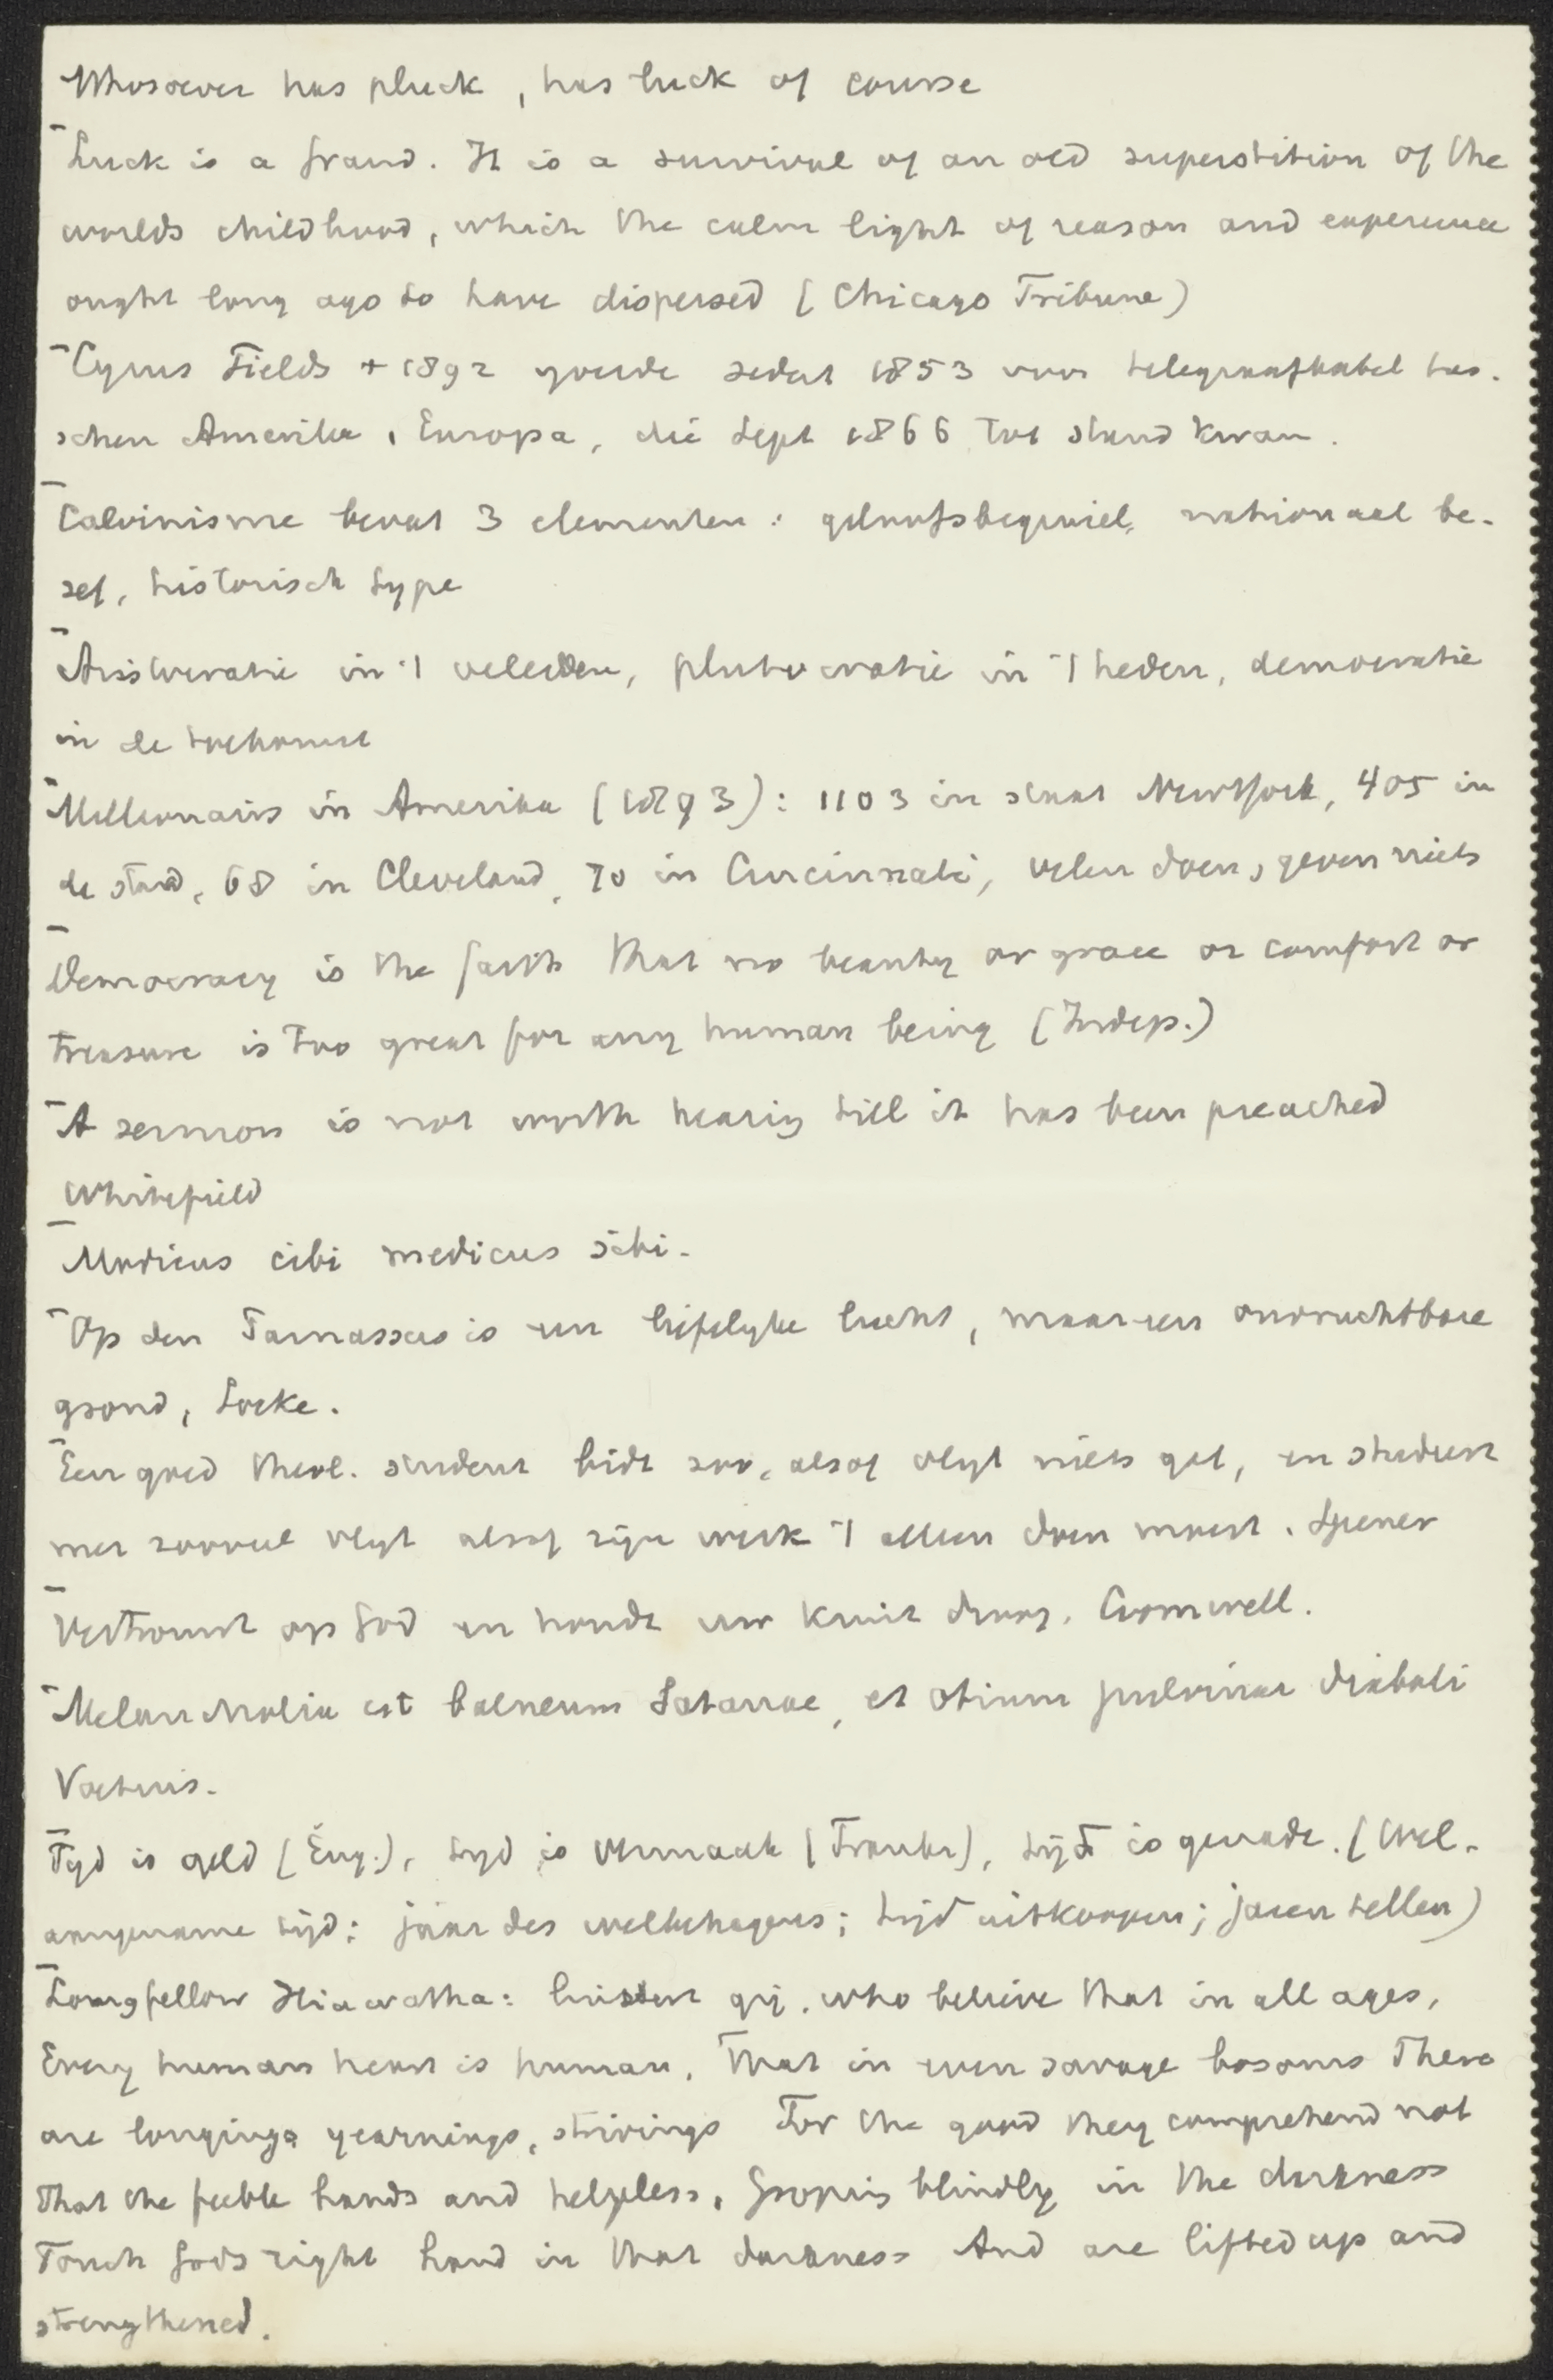 Whosoever has pluck, has luck of course
Luck is a fraud. It is a survival of an old superstition of the
worlds childhood, which the calm light of reason and experience
ought long ago to have dispersed (Chicago Tribune)
Cyrus Fields + 1892 yverde sedert 1853 voor telegraafkabel tus-
schen Amerika, Europa, die Sept 1866 tot stand kwam.
Calvinisme bevat 3 elementen: geloofsbeginsel, nationaal be-
sef, historisch type
Aristocratie in 't verleden, plutocratie in 't heden, democratie
in de toekomst
Millionairs in Amerika (1893): 1103 in staat NewYork, 405 in
de stad, 68 in Cleveland, 70 in Cincinnati, velen doen, geven niets
Democracy is the faith that no beauty or grace or comfort or
treasure is too great for any human being (Indep.)
A sermon is not worth hearing till it has been preached
Whitefield
Modicus cibi medicus sibi.
Op den Parnassus is een liefelyke lucht, maar een onvruchtbare
grond, Locke.
Een goed theol. student bidt zoo, alsof vlyt niets gel, en studeert
met zooveel vlyt alsof zijn werk 't alleen doen moest. Spener
Vertrouwt op God en houdt uw kruit droog. Cromwell.
Melancholia est balneum Satanae, et otium pulvinar diaboli
Voetius.
Tyd is geld (Eng.), tyd is vermaak (Frankr), tijd is genade. (Wel-
aangename tijd; jaar des welbehagens; tijd uitkoopen; jaren tellen)
Longfellow Hiawatha: luistert gij, who believe that in all ages,
Every human heart is human, That in even savage bosoms There
are longings yearnings, strivings For the good they comprehend not
That the feeble hands and helpless, Groping blindly in the darkness
Touch Gods right hand in that darkness And are lifted up and
strengthened.